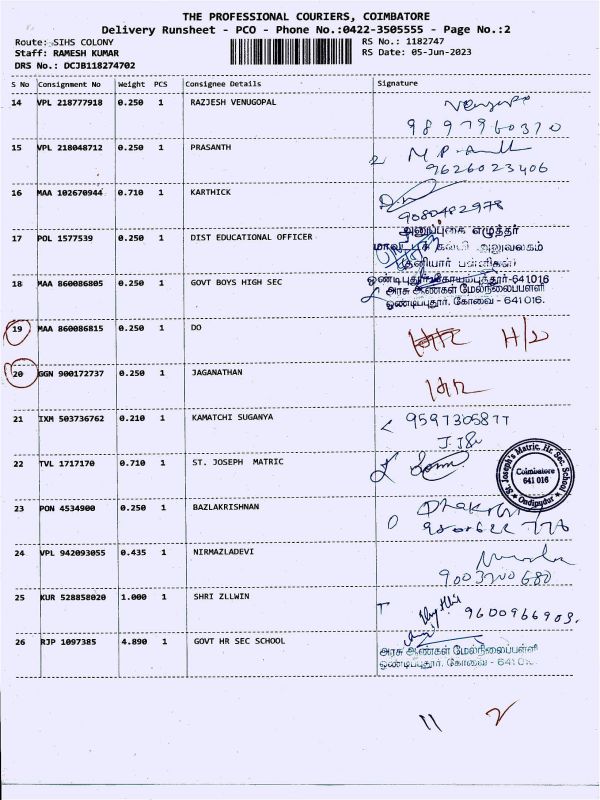 THE PROFESSIONAL COURIERS, COIMBATORE
Delivery Runsheet - PCO - Phone No.:0422-3505555 - Page No.:2
Route: SIHS COLONY RS No.: 1182747
Staff: RAMESH KUMAR RS Date: 05-Jun-2023
DRS No.: DCJB118274702
S No Consignment No Weight PCS Consignee Details Signature
14 VPL 218777918 0.250 1 RAZJESH VENUGOPAL
9897960370
15 VPL 218048712 0.250 1 PRASANTH
9626023406
16 MAA 102670944 0.710 1 KARTHICK
9080482978
அனுப்புகை எழுத்தர்
17 POL 1577539 0.250 1 DIST EDUCATIONAL OFFICER
அலுவலகம்
தனியார் பள்ளிகள்
18 MAA 860086805 0.250 1 GOVT BOYS HIGH SEC
அரசு ஆண்கள் மேல்நிலைப்பள்ளி
ஒண்டிப்புதூர், கோவை - 641 016.
19 MAA 860086815 0.250 1 DO
20 GGN 900172737 0.250 1 JAGANATHAN
21 IXM 503736762 0.210 1 KAMATCHI SUGANYA 9597305877
22 TVL 1717170 0.710 1 ST. JOSEPH MATRIC
St. Joseph's Matric. Hr. Sec. School
Coimbatore
641 016
Ondipudur
23 PON 4534900 0.250 1 BAZLAKRISHNAN
24 VPL 942093055 0.435 1 NIRMAZLADEVI
9003200680
25 KUR 528858020 1.000 1 SHRI ZLLWIN
9600966903.
26 RJP 1097385 4.890 1 GOVT HR SEC SCHOOL
அரசு ஆண்கள் மேல்நிலைப்பள்ளி
ஒண்டிப்புதூர், கோவை - 641 016.
11 2